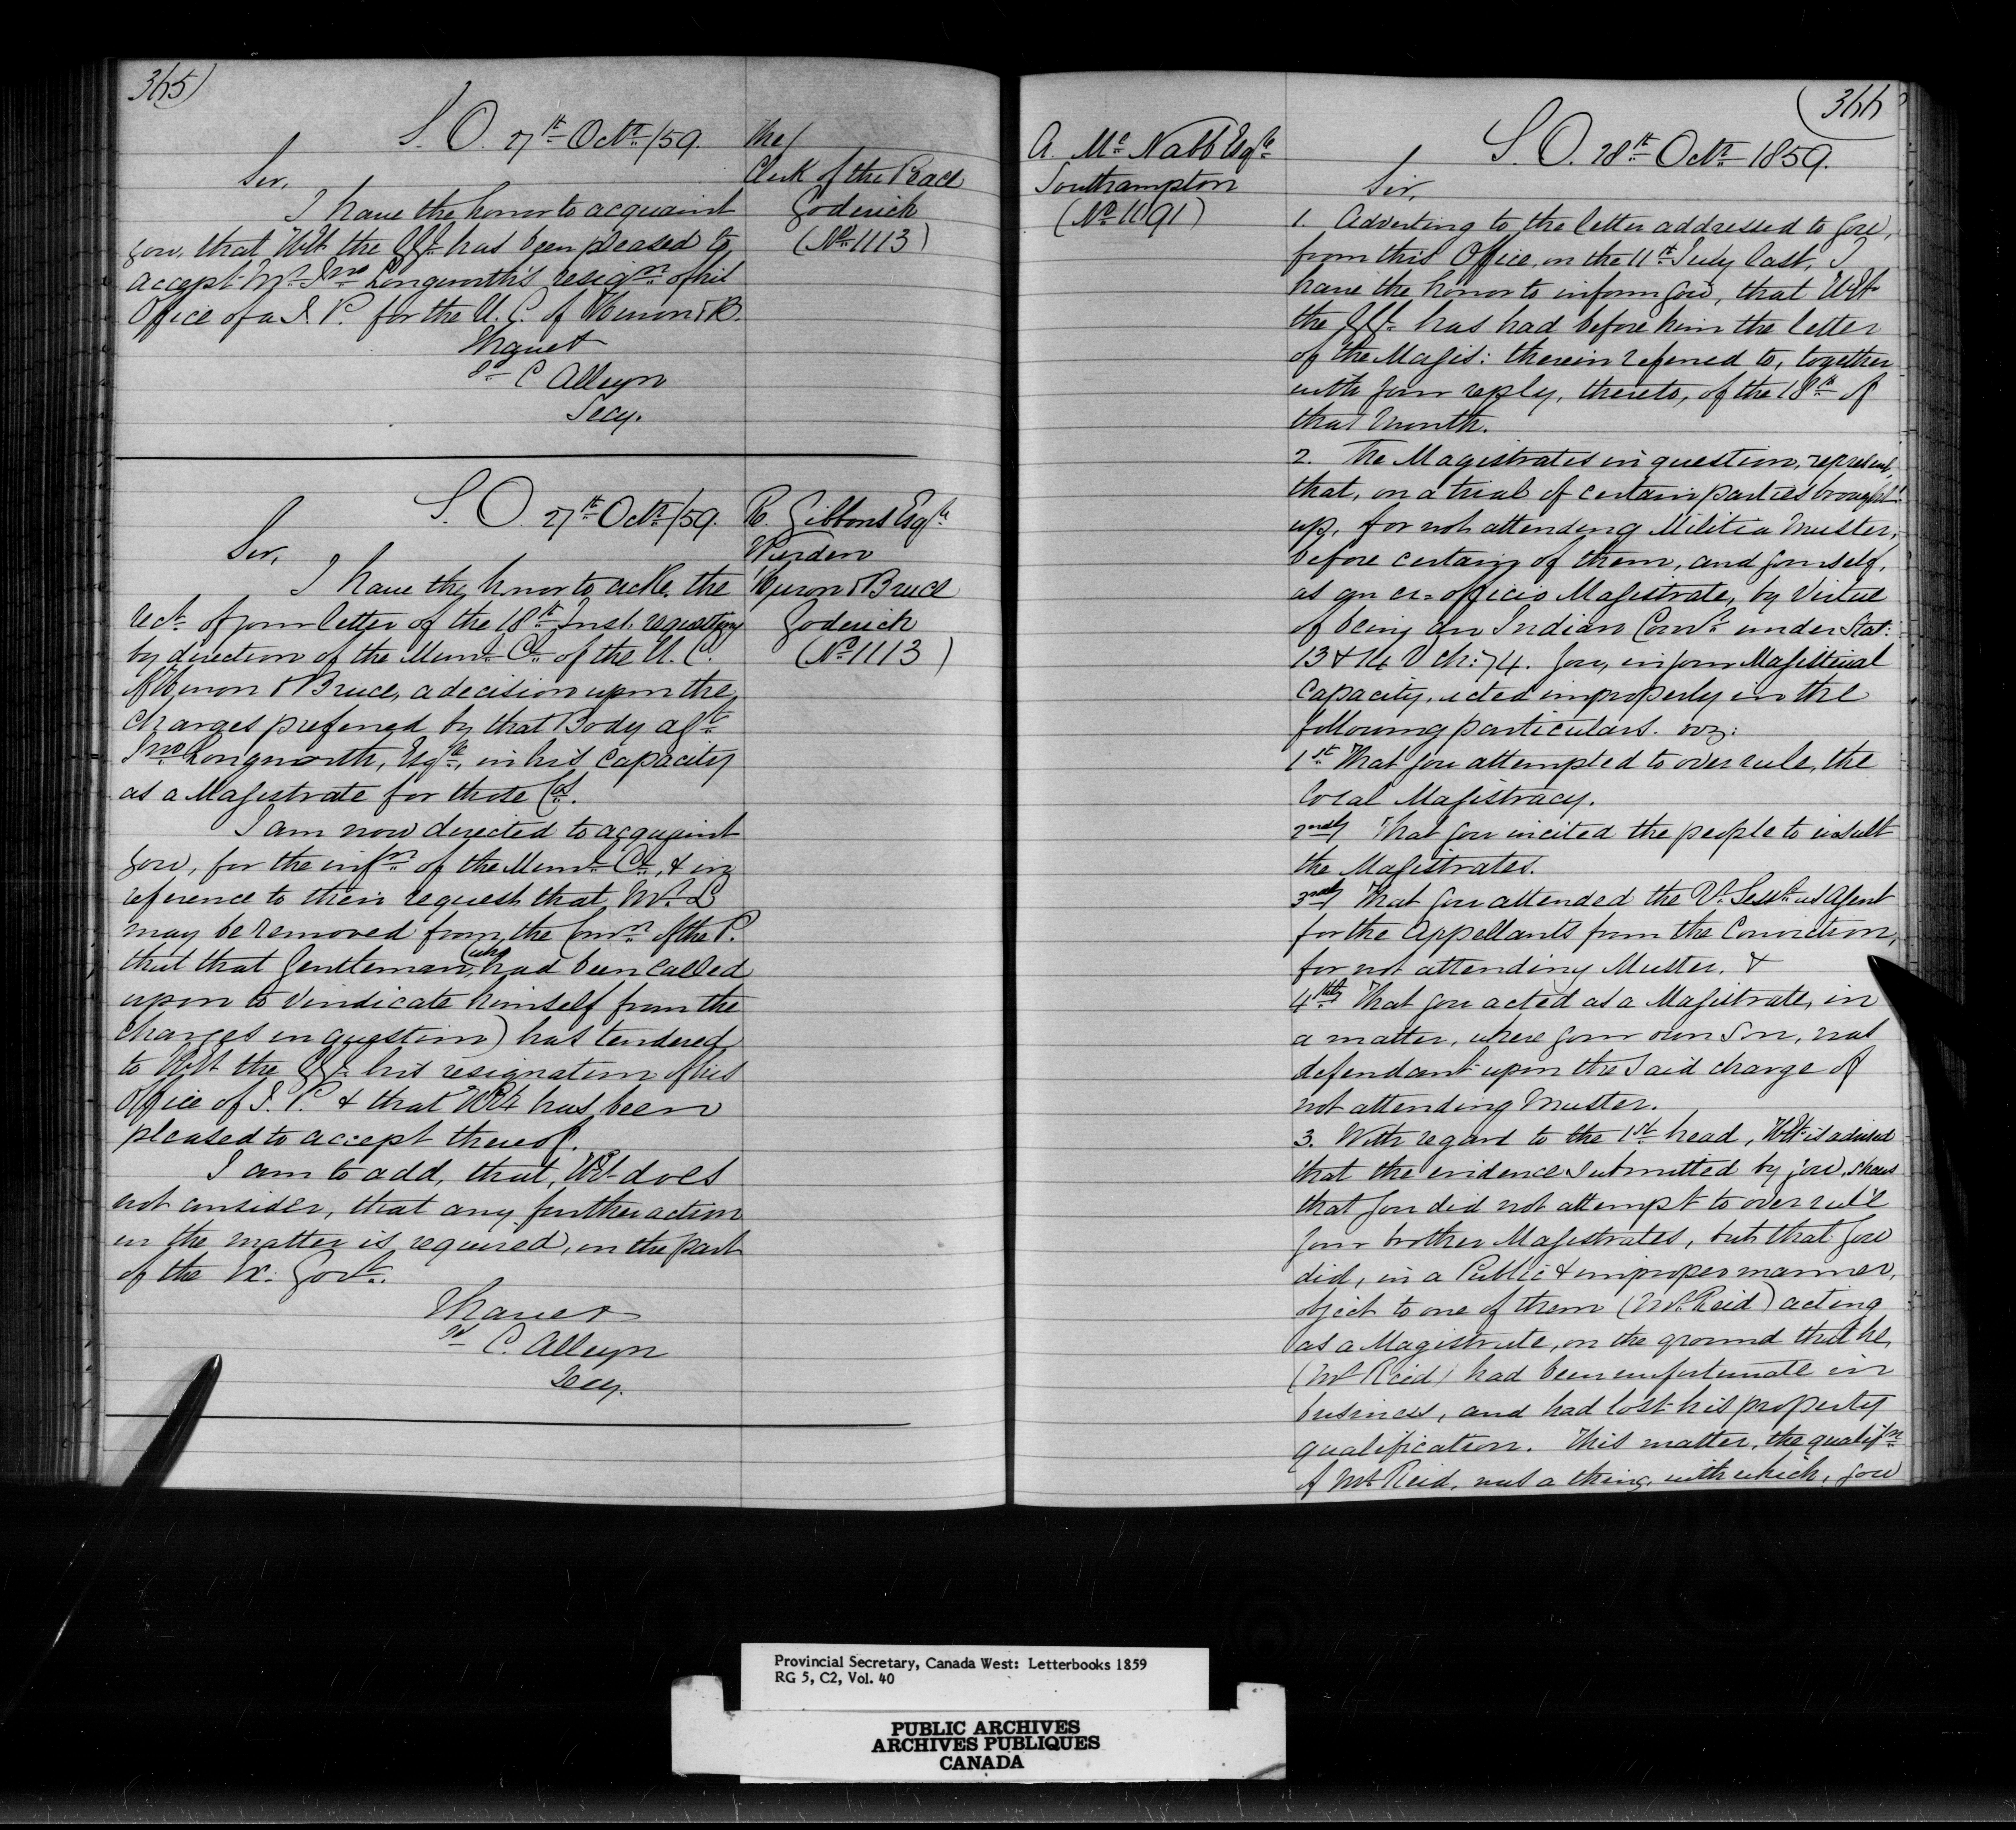 365)
S. O. 27th Octr /59.
The/
Clerk of the Peace
Goderich
(No 1113)
Sir,
I have the honor to acquaint
you, that HE the GG. has been pleased to
accept Mr. Jno Longworth's resign of his
Office of a J. P. for the U. C. of Huron & B.
I have &
Sd C Alleyn
Secy.
S. O. 27th Octr /59.
R. Gibbons Esqre
Warden
Huron & Bruce
Goderich
(No 1113)
Sir,
I have the honor to ackle the
rect of your letter of the 18th Inst. requesting
by direction of the Munl Cl of the U. C.
of Huron & Bruce, a decision upon the
charges preferred by that Body agt
Jno Longworth, Esqre, in his capacity
as a Magistrate for those Cos.
I am now directed to acquaint
you, for the infn of the Munl Cl, & in
reference to their request that Mr. L
may be removed from the Comn of the P.
that that Gentleman, (who had been called
upon to vindicate himself from the
charges in question) has tendered
to HE the GG. his resignation of his
Office of J. P. & that HE has been
pleased to accept thereof.
I am to add, that, HE does
not consider, that any further action
in the matter is required, on the part
of the Ex. Govt.
I have &
Sd C. Alleyn
Secy.
(366
A. Mc Nabb Esqre
Southampton
(No 1191)
S. O. 28th Octr 1859.
Sir,
1. Adverting to the letter addressed to you,
from this Office, on the 11th July last, I
have the honor to inform you, that HE
the GG. has had before him the letter
of the Magis: therein referred to, together
with your reply, thereto, of the 18th of
that month.
2. The Magistrates in question, represent,
that, on a trial of certain parties brought
up, for not attending Militia Muster,
before certain of them, and yourself,
as an ex-officio Magistrate, by virtue
of being an Indian Comr under Stat:
13 & 14 V ch: 74. you, in your Magisterial
capacity, acted improperly in the
following particulars. viz:
1st That you attempted to over rule, the
local Magistracy.
2ndly That you incited the people to insult
the Magistrates.
3rdly That you attended the Qr. Sess. as Agent
for the Appellants from the Conviction,
for not attending Muster. &
4thly That you acted as a Magistrate, in
a matter, where your own Son, was
defendant upon the said charge of
not attending Muster.
3. With regard to the 1st head, HE is advised
that the evidence submitted by you, shews
that you did not attempt to over rule
your brother Magistrates, but that you
did, in a Public & improper manner,
object to one of them (Mr. Reid) acting
as a Magistrate, on the ground that he,
(Mr Reid) had been unfortunate in
business, and had lost his property
qualification. This matter, the qualifn
of Mr Reid, was a thing, with which, you
Provincial Secretary, Canada West: Letterbooks 1859
RG 5, C2, Vol. 40
PUBLIC ARCHIVES
ARCHIVES PUBLIQUES
CANADA